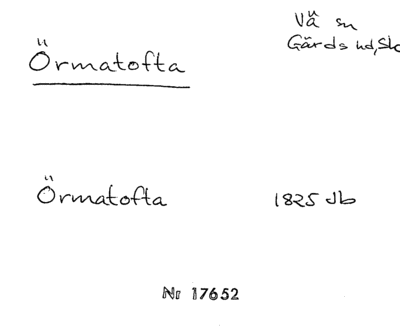 Örmatofta
Vä sn
Gärds hd, Sk
Örmatofta 1825 Jb
Nr 17652